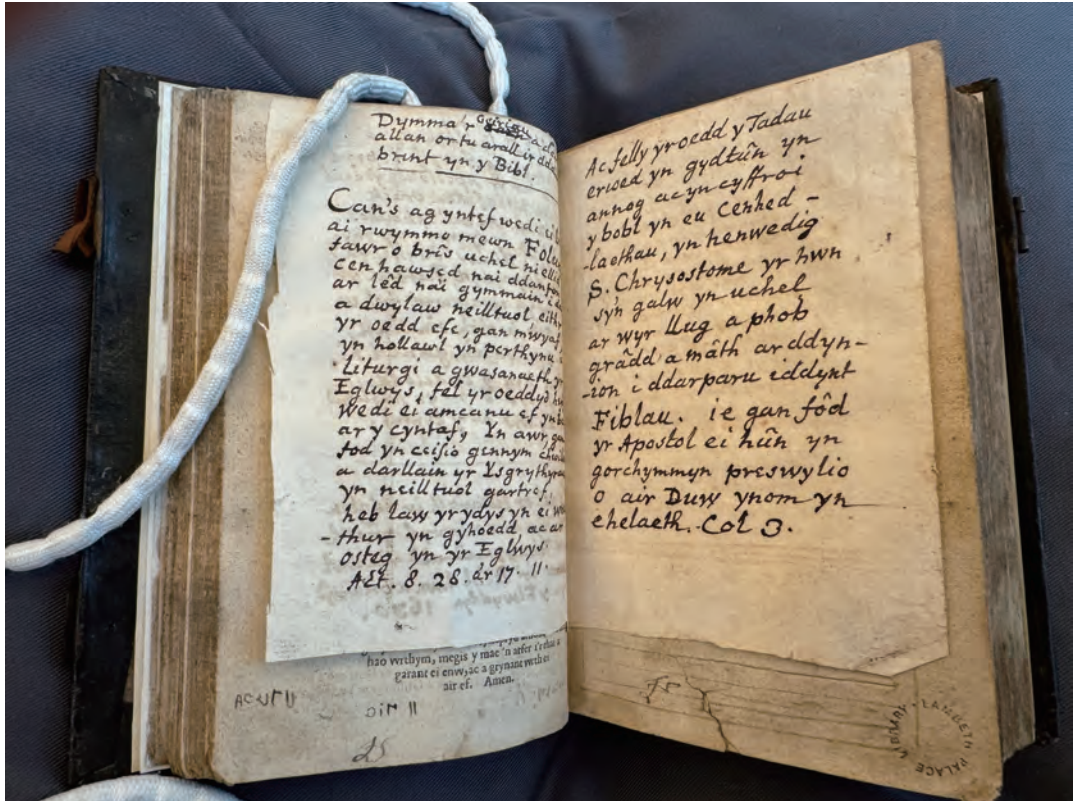 Dymma'r Geiriau a d
allan or tu arall ir dda
brint yn y Bibl.
Can's ag yntef wedi
ai rwymmo mewn Folu
fawr o brîs uchel ni elli
cen hawsed nai ddanfon
ar lêd nai gymmain
a dwylaw neilltuol eithr
yr oedd efe, gan mwyaf
yn hollawl yn perthynu
Liturgi a gwasanaeth yr
Eglwys, fel yr oeddyd
wedi ei amcanu ef yn
ar y cyntaf, Yn awr, gan
fod yn ceisio gennym
a darllain yr Ysgrythyrau
yn neilltuol gartref,
heb law yr ydys yn ei w
-thur yn gyhoedd ac ar
osteg yn yr Eglwys.
Act. 8. 28. ar 17. 11.
hao wrthym, megis y mae 'n arfer i'r rhai a
garant ei enw, ac a grynant wrth ei
air ef. Amen.
Ac felly yr oedd y Tadau
erioed yn gydtûn yn
annog ac yn cyffroi
y bobl yn eu Cenhed-
-laothau, yn henwedig
S. Chrysostome yr hwn
sy'n galw yn uchel
ar wyr llug a phob
grâdd a mâth ar ddyn-
-ion i ddarparu iddynt
Fiblau. ie gan fôd
yr Apostol ei hûn yn
gorchymmyn preswylio
o air Duw ynom yn
ehelaeth. Col 3.
LAMBETH PALACE LIBRARY